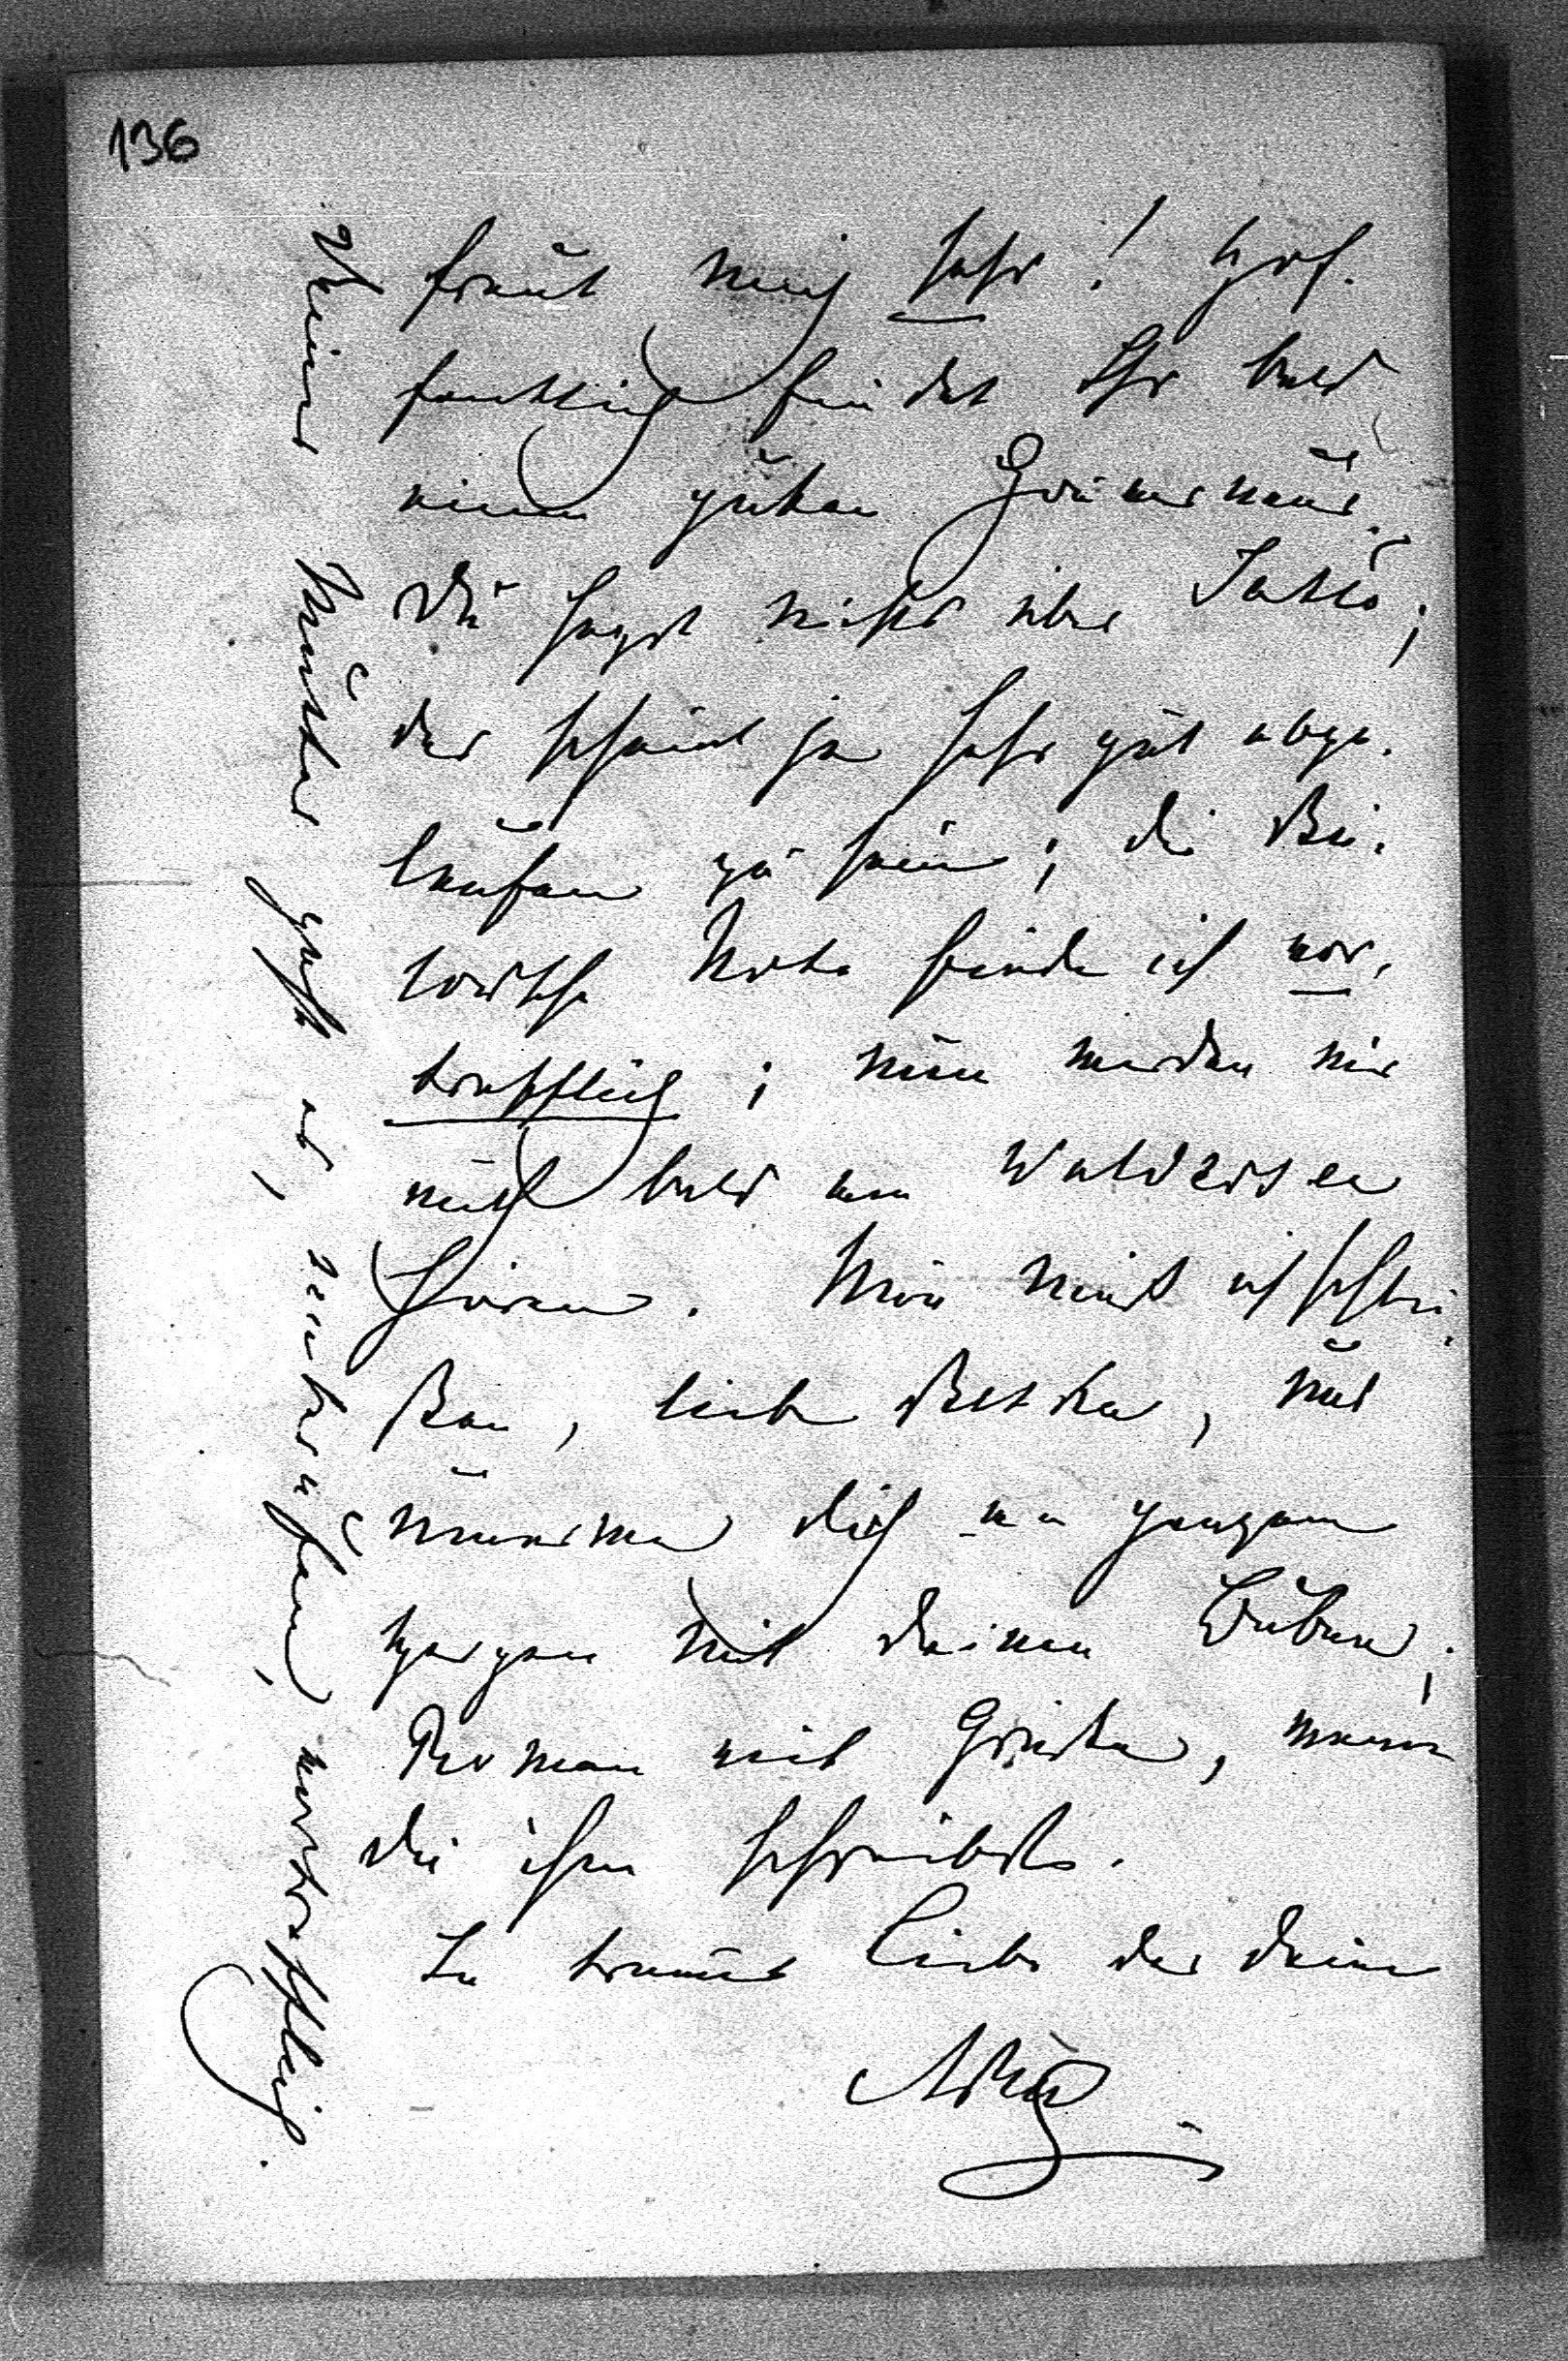 136
freut mich sehr! Hof-
fentlich findet Ihr bald
einen guten Gouverneur.
Du sagst nichts über
der scheint ja sehr gut abge-
laufen zu sein; die Bü-
lowsche Note finde ich vor-
trefflich; nun werden wir
auch bald von Waldersee
hören. Nun muß ich schlie-
ßen, liebe und
umarme Dich von ganzem
Herzen mit Deinen Buben;
Roman mit Grüße, wenn
Du ihm schreibst.
In treuer Liebe der Deine

Meiner Mutter geht es, vortrefflich.